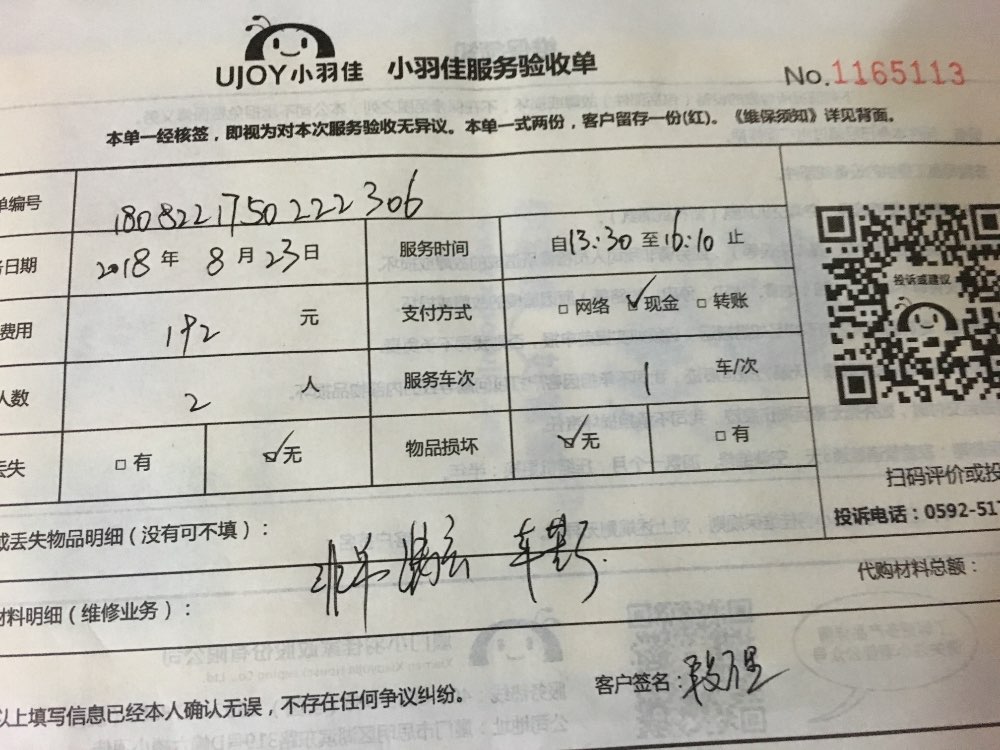 UJOY小羽佳 小羽佳服务验收单
No.1165113
本单一经核签，即视为对本次服务验收无异议。本单一式两份，客户留存一份(红)。《维保须知》详见背面。
单编号 180822175022306
务日期 2018年8月23日 服务时间 自13:30至16:10止
费用 192元 支付方式 □网络 ☑现金 □转账
人数 2人 服务车次 1车/次
丢失 □有 ☑无 物品损坏 ☑无 □有
投诉或建议
扫码评价或投
投诉电话：0592-517
或丢失物品明细（没有可不填）：
代购材料总额：
材料明细（维修业务）：
客户签名：
以上填写信息已经本人确认无误，不存在任何争议纠纷。